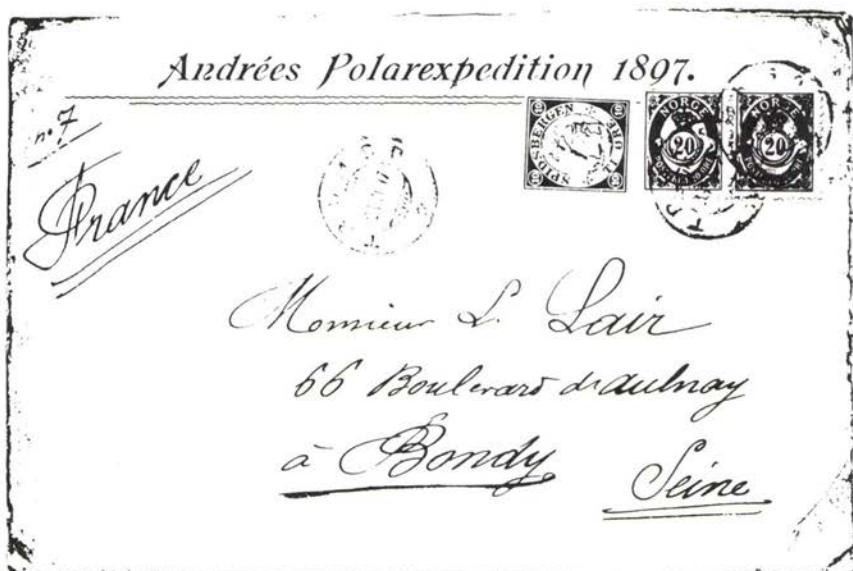 Andrées Polarexpedition 1897.
no 7
France
SPIDSBERGEN
10 ØRE
NORGE
20
NORGE
20
Monsieur L. Lair
66 Boulevard de aulnay
à Bondy
Seine